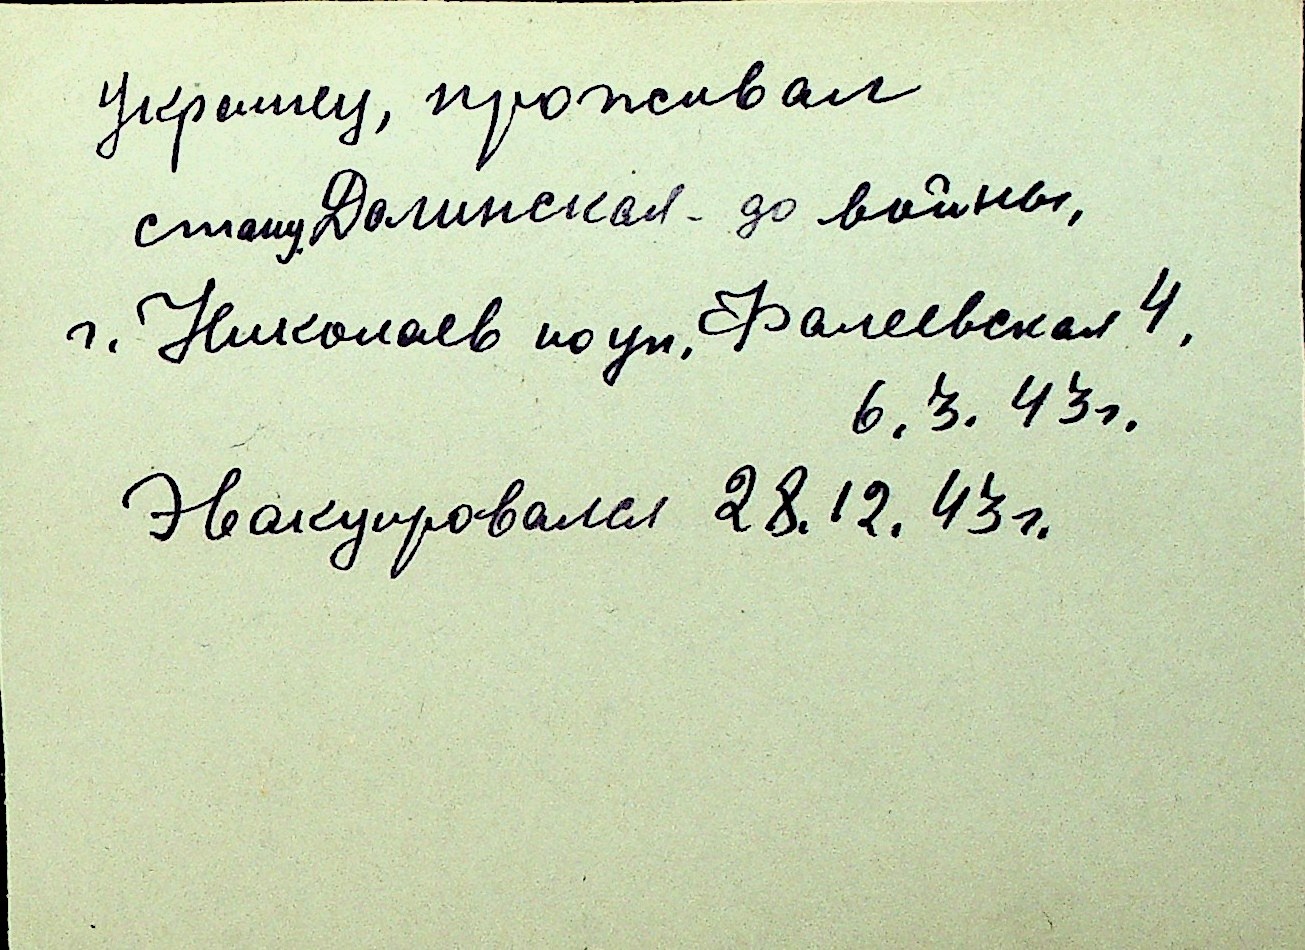 Украинец, проживал
станц. Долинская - до войны,
г. Николаев по ул. Фалеевская 4,
6.3.43г.
Эвакуировался 28.12.43г.